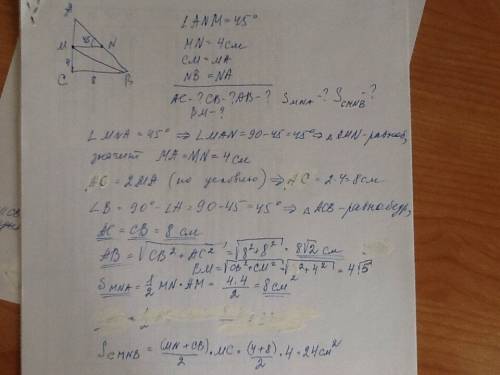 A
M
45°
N
4
C
8
B
∠ANM=45°
MN=4см
CM=MA
NB=NA
AC-? CB-? AB-? S MNA-? S CMNB-?
BM-?
∠MNA=45° ⇒ ∠MAN=90-45=45° ⇒ △AMN-равноб,
значит MA=MN=4см
AC=2MA (по условию) ⇒ AC=2·4=8см
∠B=90°-∠A=90-45=45° ⇒ △ACB-равнобедр,
AC=CB=8см
AB=√CB²+AC²=√8²+8²=8√2 см
CM=√CB²+CM²=√8²+4²=4√5
S MNA=1/2 MN·AM=4·4/2=8см²
S CMNB=(MN+CB)/2·MC=(4+8)/2·4=24см²